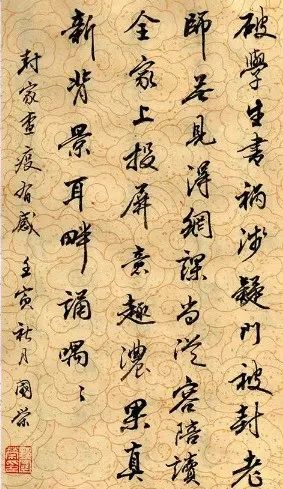 破學生書禍涉疑門被封老
師見得網課尚從容陪讀
全家上投屏意趣濃果真
新背景耳畔誦喁〻
封家查疫有感 壬寅秋月 國榮